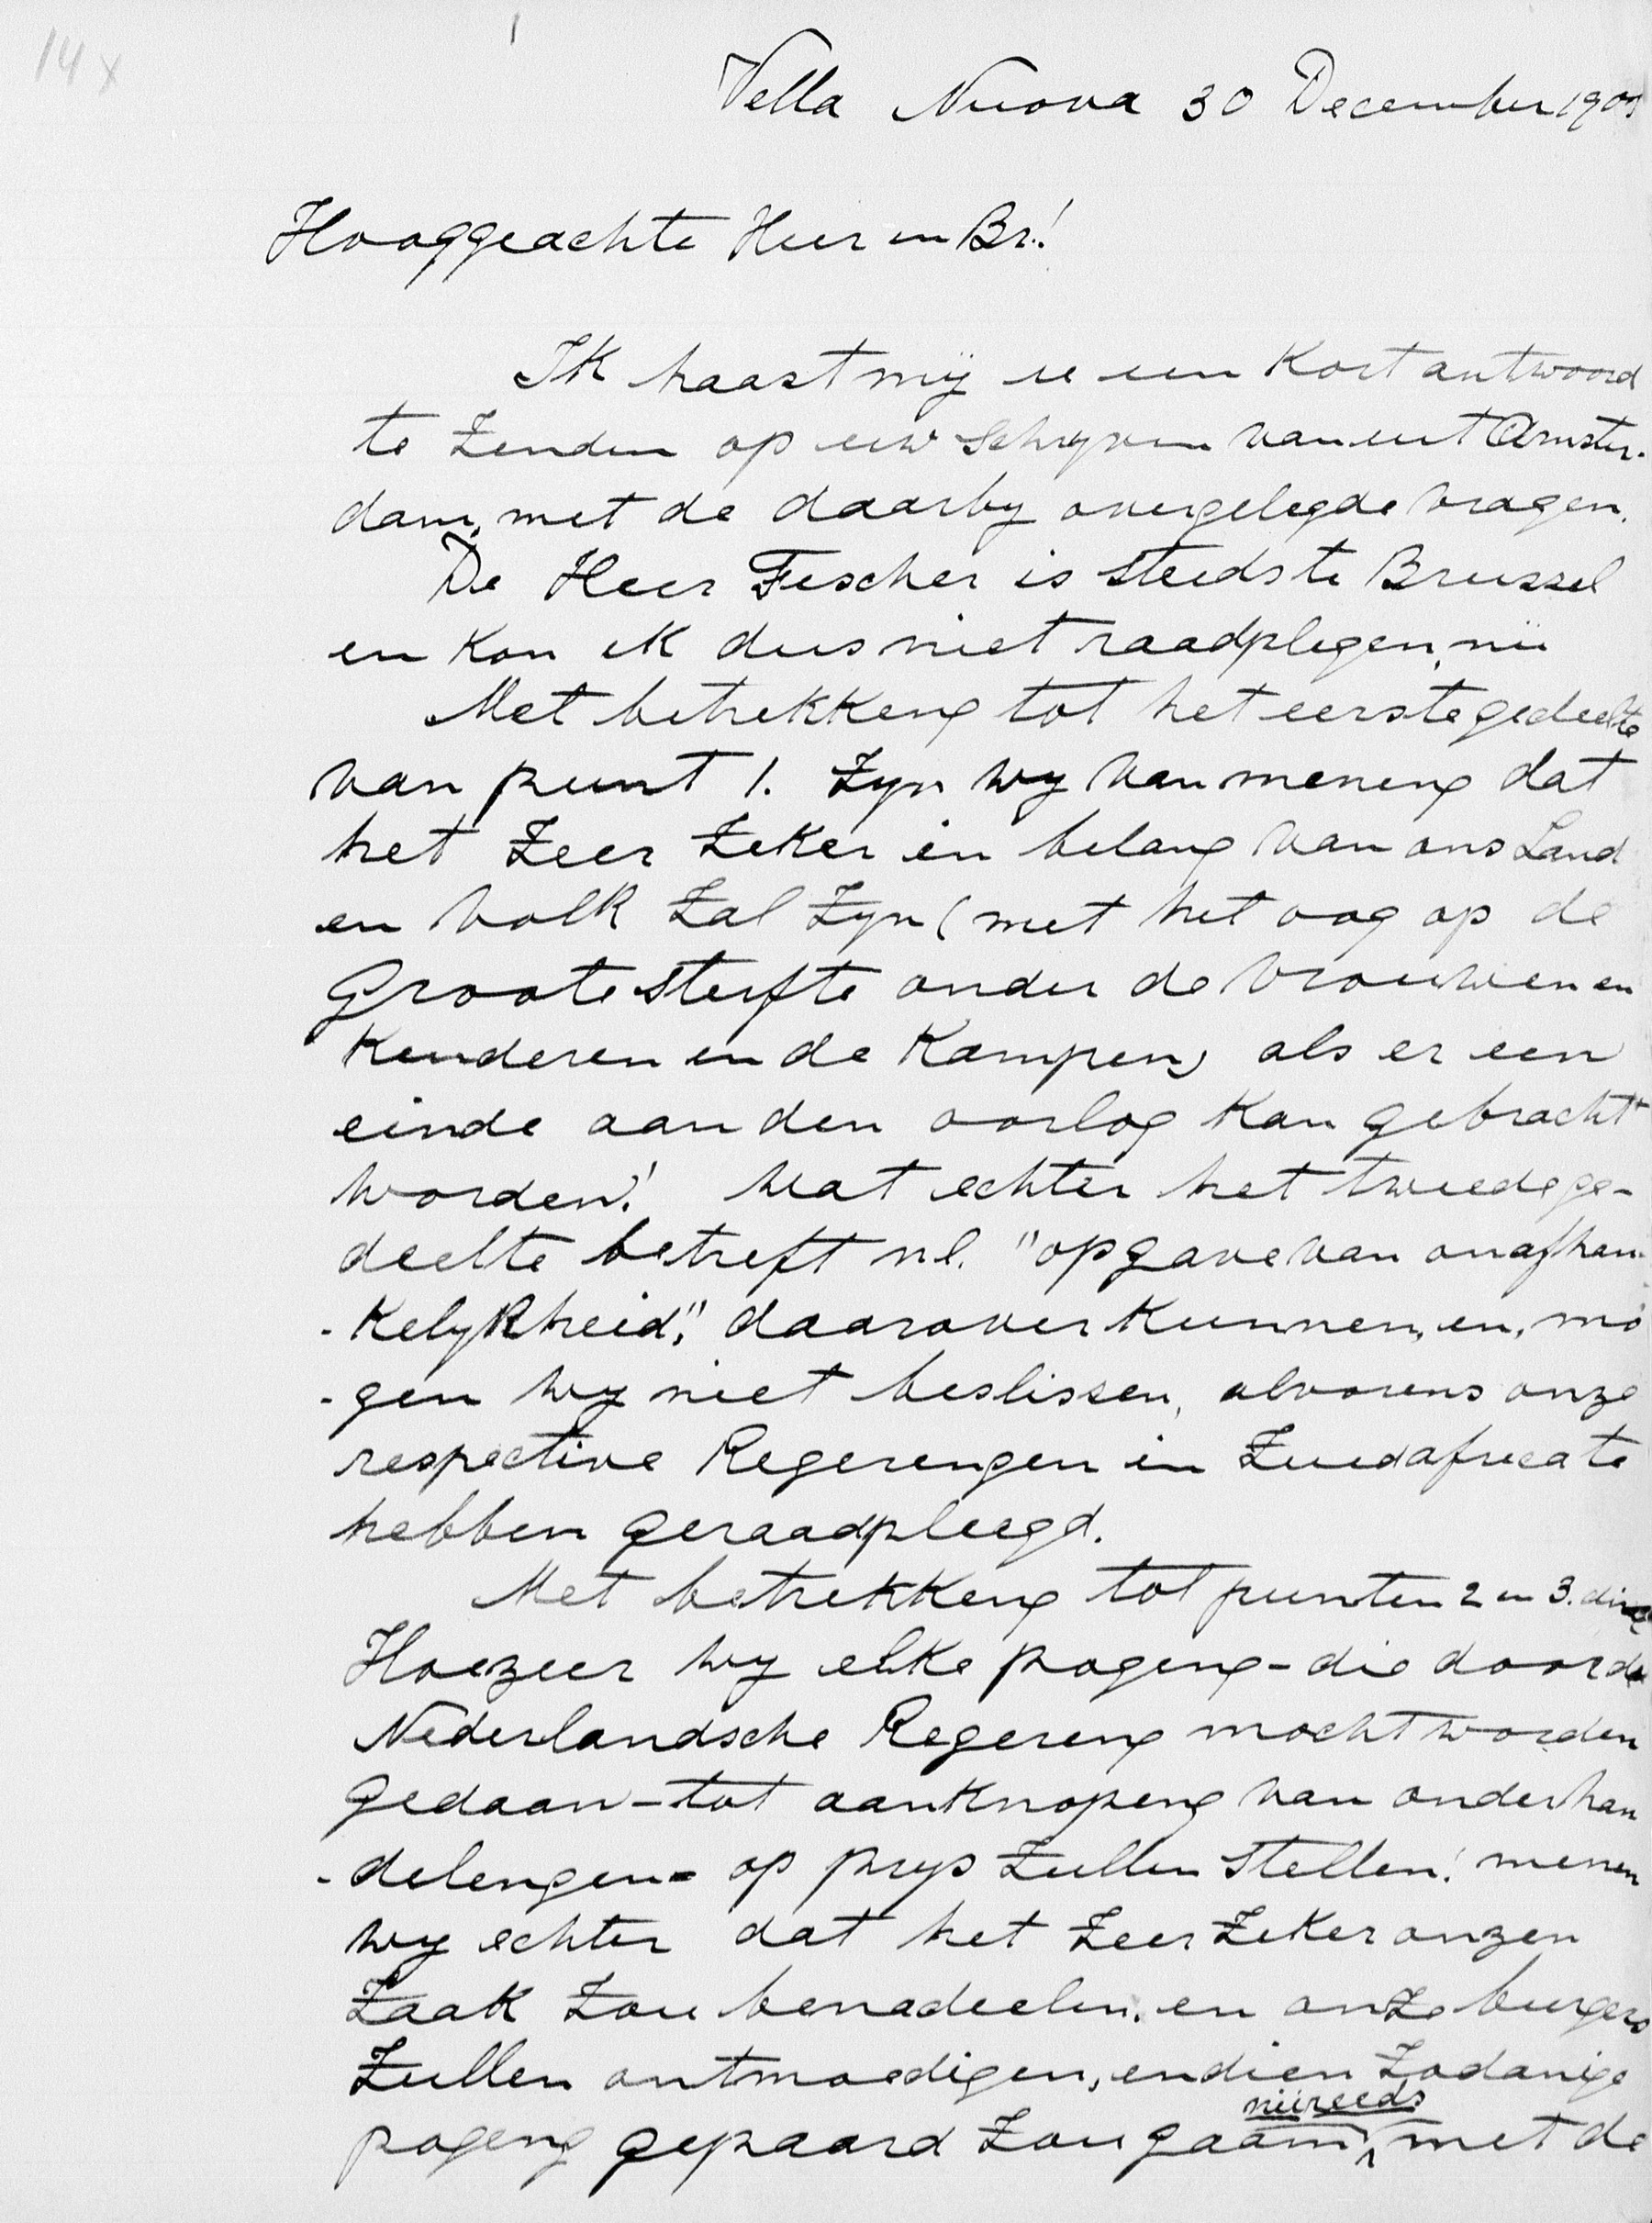 14 x
Vella Nuova 30 December 1901
Hooggeachte Heer en Br.!
Ik haast mij u een Kort antwoord
te Zenden op uw Schryven van uit Amster-
dam, met de daarby overgelegde vragen.
De Heer Fischer is steeds te Brussel
en Kon ik dus niet raadplegen, nu
Met betrekking tot het eerste gedeelte
van punt 1. Zyn wy van mening dat
het Zeer Zeker in belang van ons Land
en Volk Zal Zyn (met het oog op de
Groote Sterfte onder de Vrouwen en
Kinderen in de Kampen) als er een
einde aan den oorlog Kan gebracht
worden! Wat echter het tweede ge-
deelte betreft nl. "opgave van onafhan-
-Kelykheid," daarover Kunnen, en, mo
-gen wy niet beslissen, alvorens onze
respective Regeringen in Zuidafrica te
hebben geraadpleegd.
Met betrekking tot punten 2 en 3.
Hoezeer wy elke poging - die door de
Nederlandsche Regering mocht worden
gedaan - tot aanknoping van onderhan
-delingen - op prys Zullen Stellen! menen
wy echter dat het Zeer Zeker onzen
Zaak Zou benadeelen, en onze burgers
Zullen ontmoedigen, indien Zodanige
poging gepaard Zou gaan, nu reeds met de